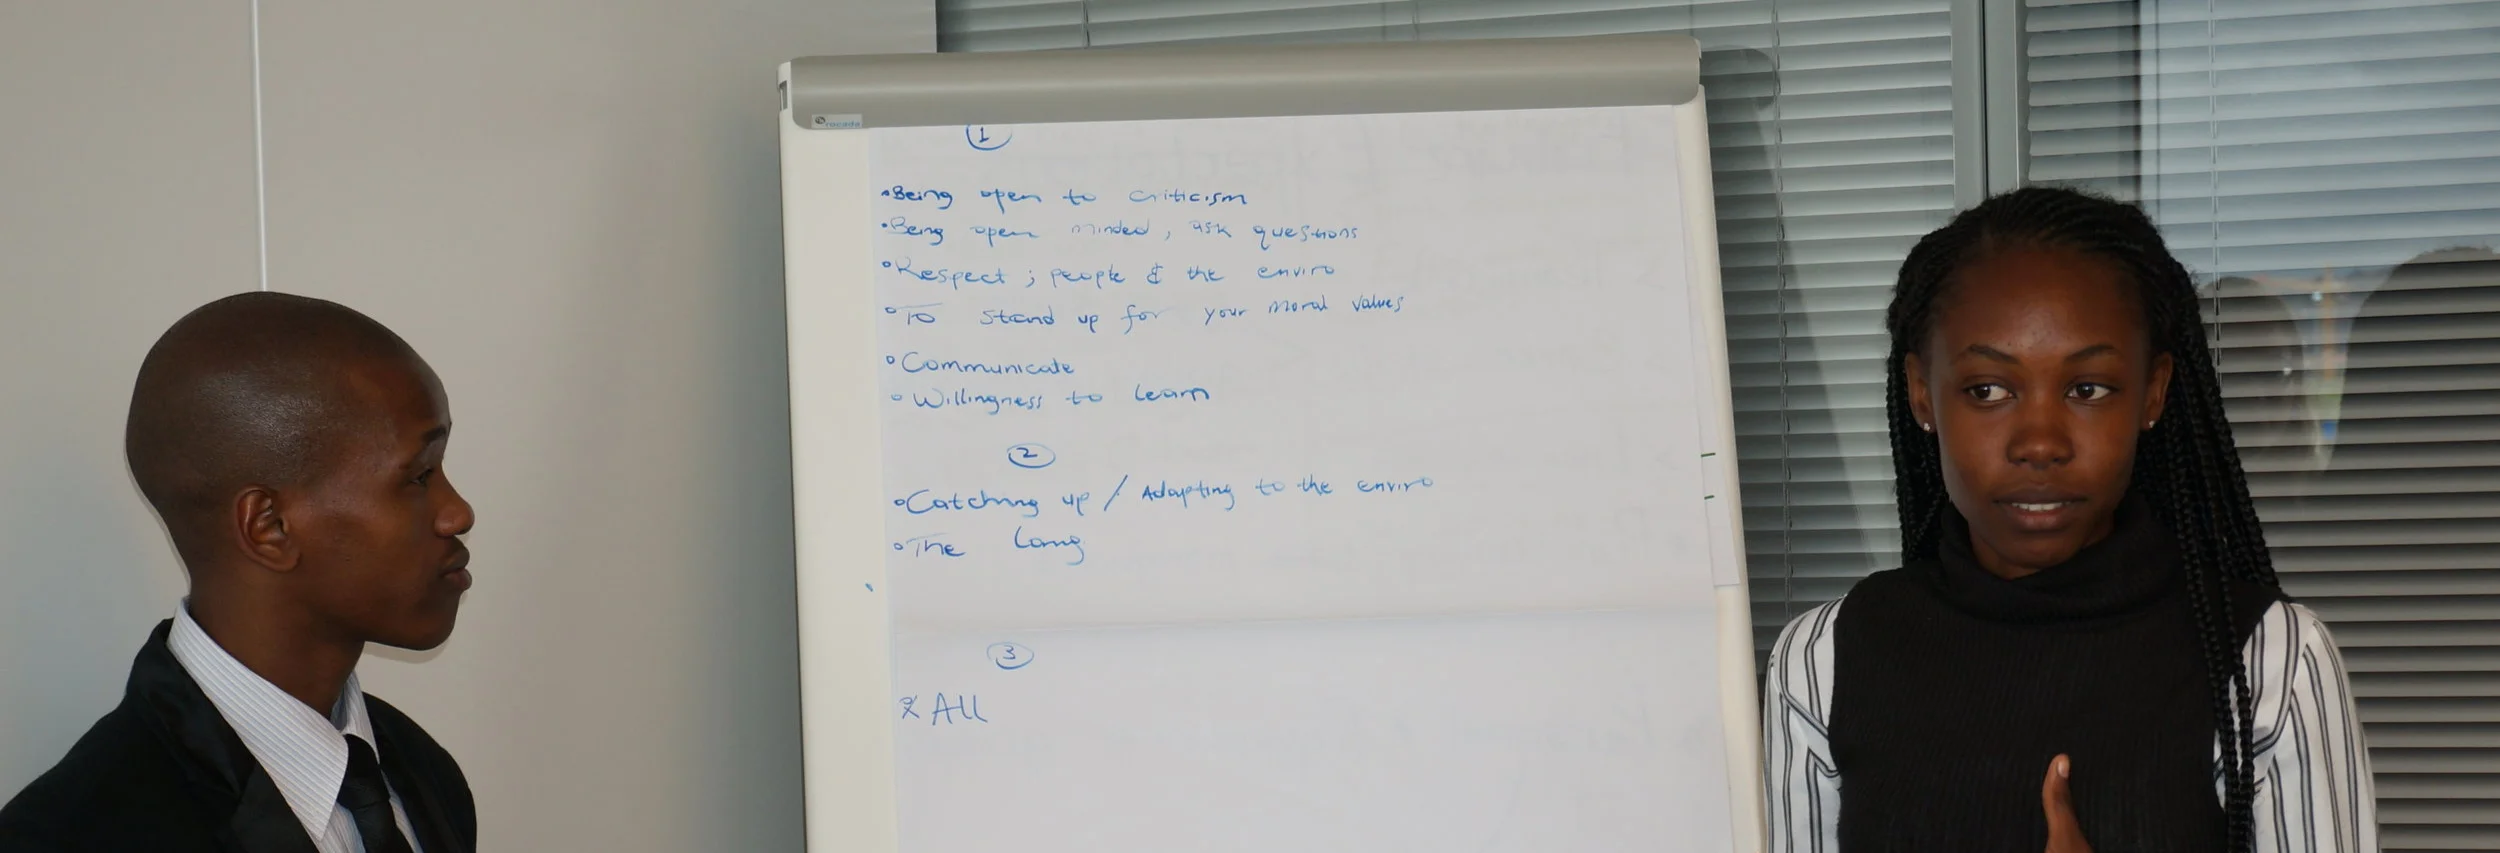 rocada
1
•Being open to criticism
•Being open minded, ask questions
•Respect ; people & the enviro
•To stand up for your moral values
•Communicate
•Willingness to learn
2
•Catching up / Adapting to the enviro
•The lang
3
All